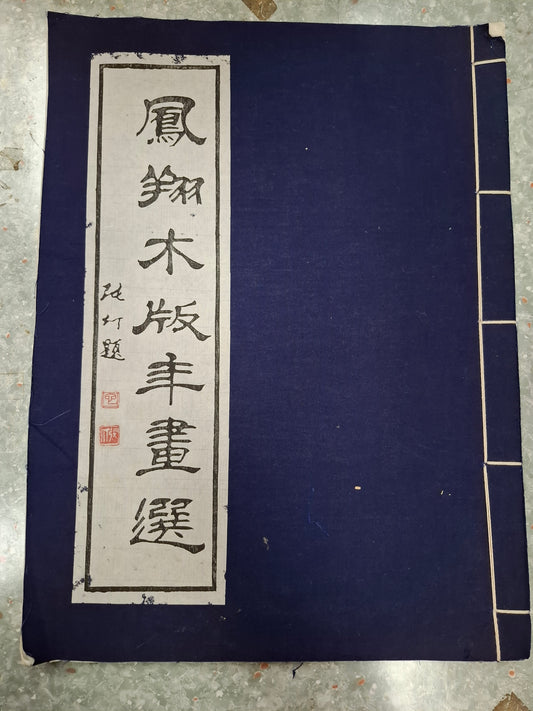 鳳翔木版年畫選
张仃題